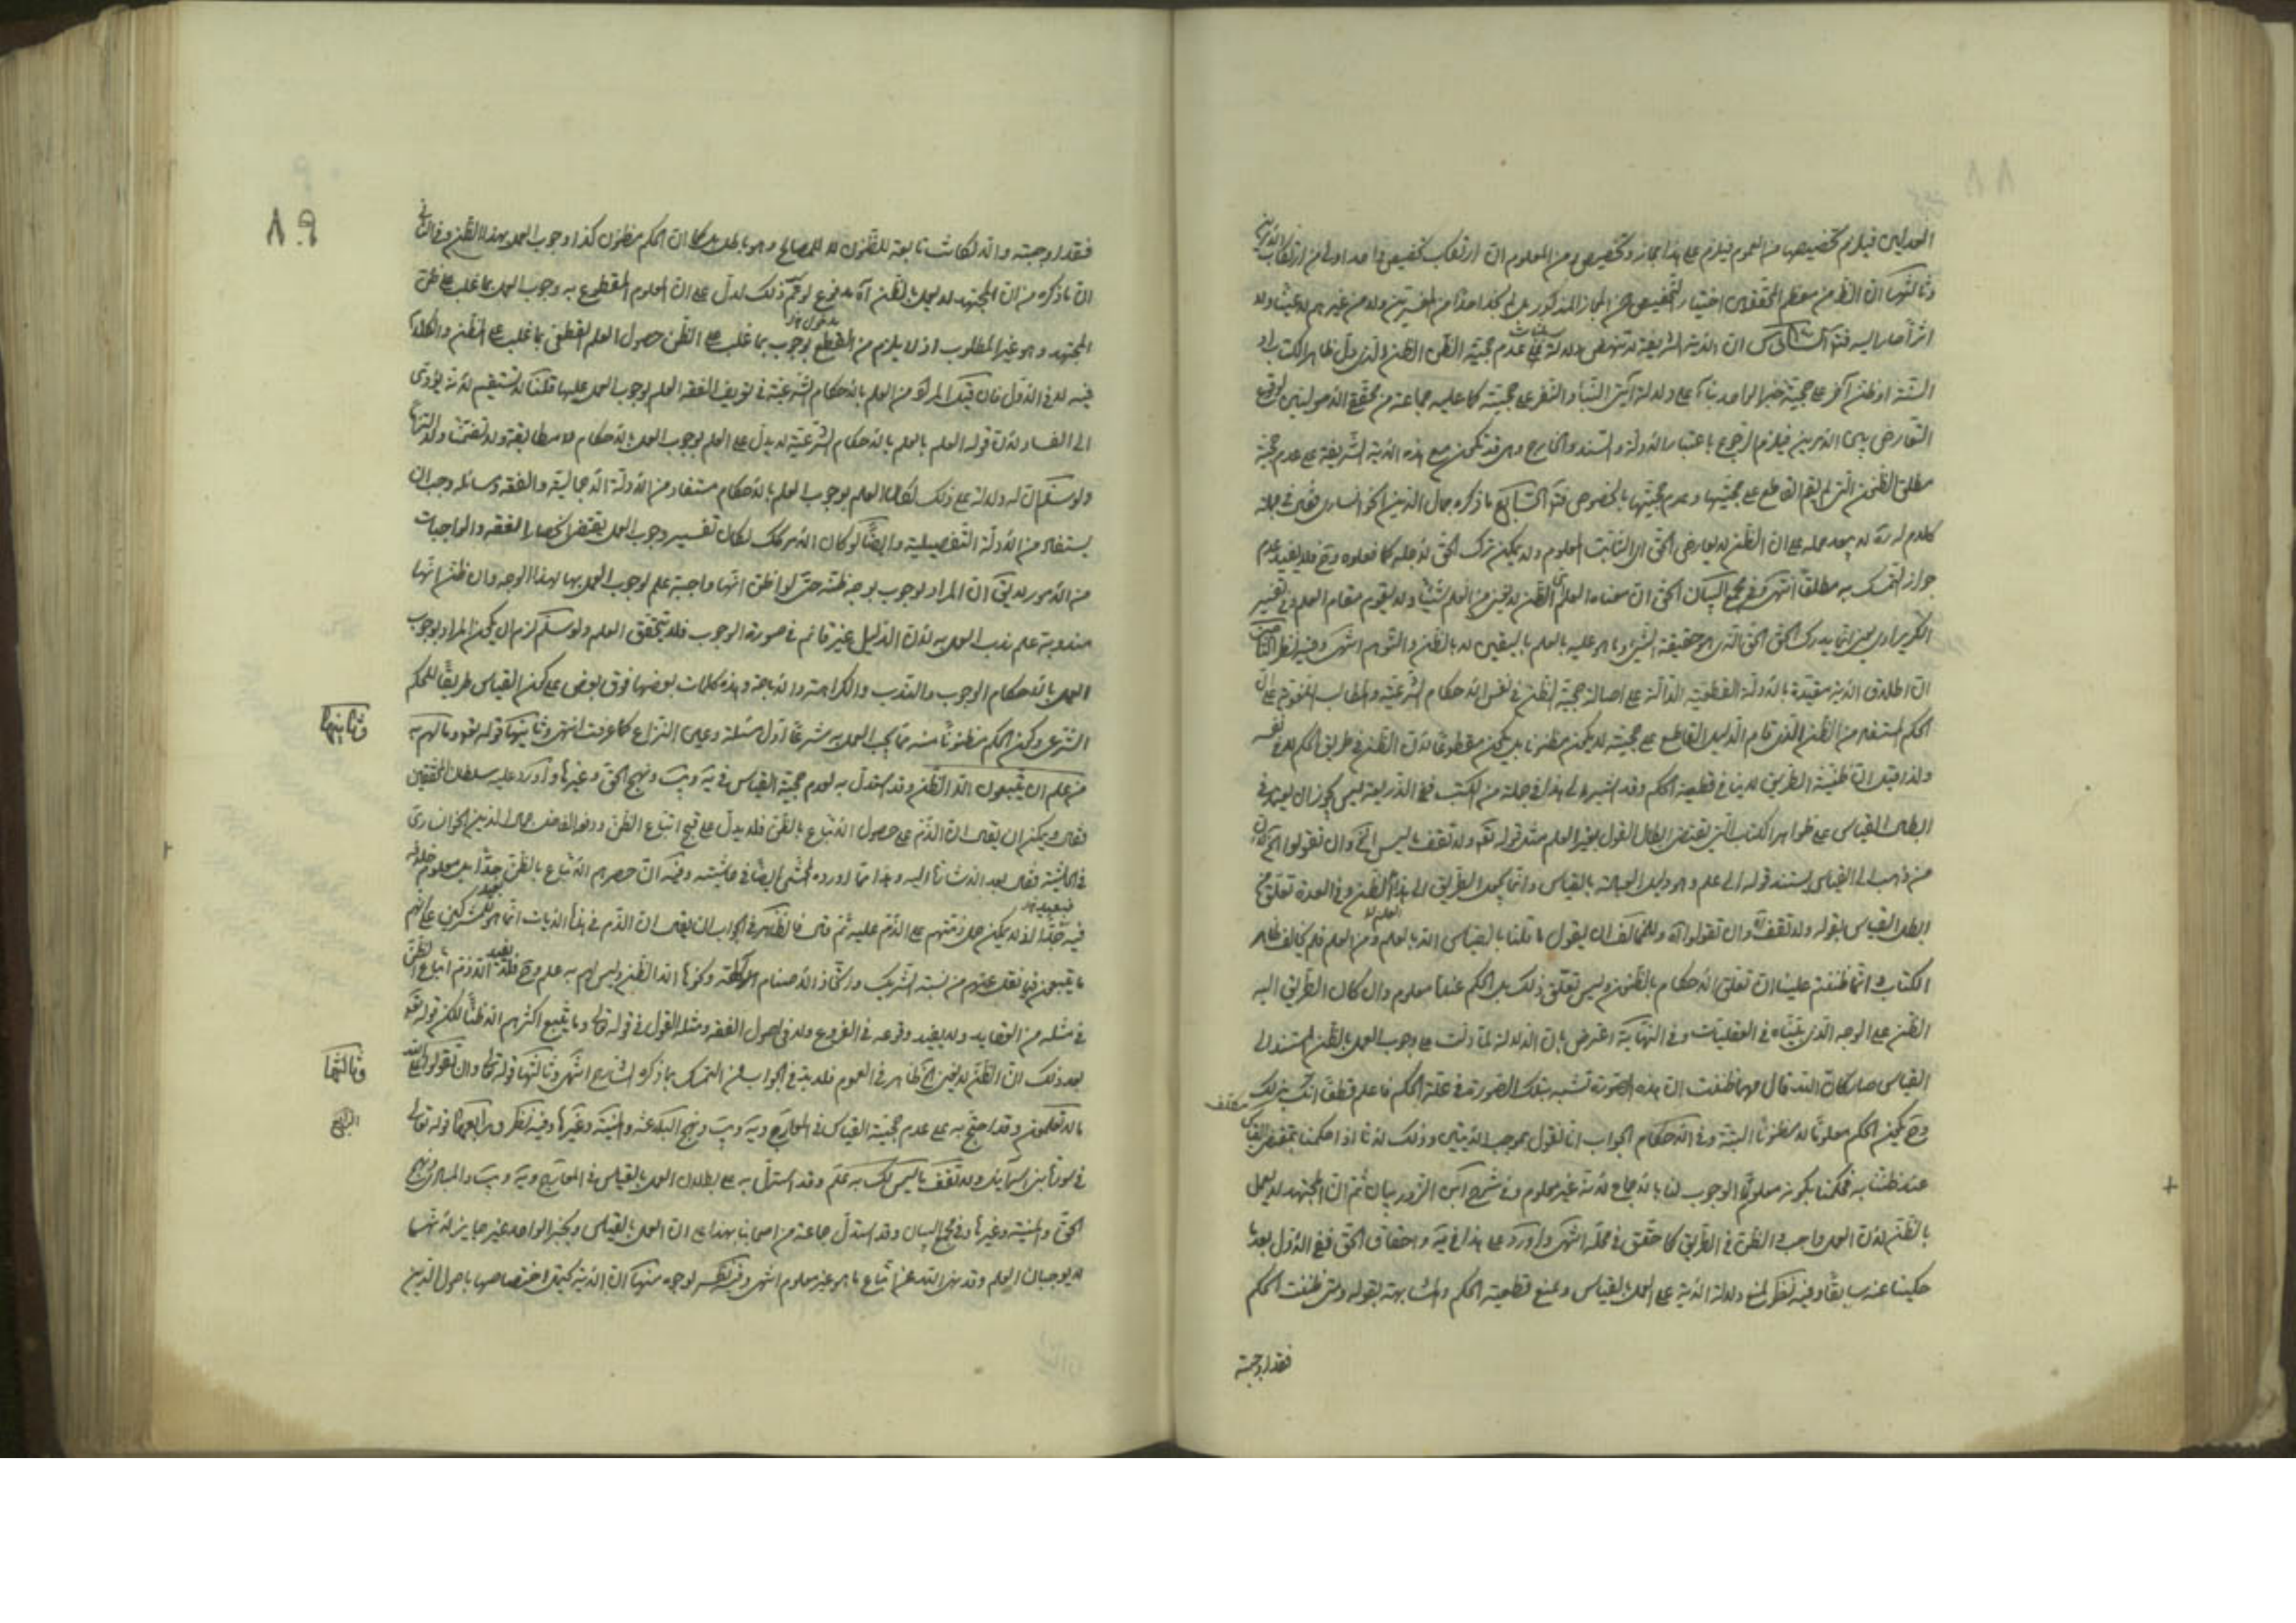 العدلين فيلزم تخصيصها من العموم فيلزم على هذا مجاز وتخصيص ومن المعلوم ان ارتكاب تخصيص واحد اولى من ارتكاب
وثالثها ان الظ من معظم المحققين اختيار التخصيص من المجاز المذكور بل لم نجد احدا من المفسرين ولا من غيرهم
ان الاية الشريفة لا تنهض لدلالة على عدم حجية الظن الذي دل ظاهر الكتاب او
السنة او ظن آخر على حجية خبر الواحد بناء على دلالة آيتي النبأ والنفر على حجيته كما عليه جماعة من محققي الاصوليين
التعارض بين الامرين فيلزم الرجوع باعتبار الدلالة والسند والخارج وهي قد تكون مع هذه الاية الشريفة على عدم حجية
مطلق الظنون التي لم يقم القاطع على حجيتها وعدم حجيتها بالخصوص ما ذكره جمال الدين الخوانساري فق في جملة
كلام له لا يبعد حمله على ان الظن لا يعارض الحق اي الثابت المعلوم ولا يمكن ترك الحق لاجله كما فعلوه وح فلا يفيد عدم
جواز التمسك به مطلقا انتهى وفي مجمع البيان الحق ان معناه العلم اي الظن لا يغني من العلم شيئا ولا يقوم مقام العلم وفي تفسير
انما يدرك الحق الذي هو حقيقة الشيء وما هو عليه بالعلم باليقين لا بالظن والتوهم انتهى وفيه نظر
ان اطلاق الاية مقيدة بالادلة القطعية الدالة على اصالة حجية الظن في نفس الاحكام الشرعية
الحكم المستفاد من الظن الذي قام الدليل القاطع على حجيته لا يكون مظنونا بل يكون مقطوعا لان الظن في طريق الحكم لا في نفسه
ولذا قيل ان ظنية الطريق لا ينافي قطعية الحكم وقد اشير الى هذا في جملة من الكتب ففي الذريعة ليس يجوز ان يعتمد في
ابطال القياس على ظواهر الكتاب التي تقتضي ابطال القول بغير العلم مثل قوله تعا ولا تقف ما ليس الخ وان تقولوا الخ لان
من ذهب الى القياس يستند قوله الى علم وهو دليل العبادة بالقياس وانما يجعل الطريق الى هذا الظن وفي العدة تعلق من
ابطل القياس بقوله ولا تقف الخ وان تقولوا الخ وللمخالف ان يقول ما قلنا بالقياس الا بالعلم ومن العلم فلم نخالف ظاهر
الكتاب وانما ظننتم علينا ان تعلق الاحكام بالظنون وليس تعلق ذلك بل الحكم عندنا معلوم وان كان الطريق اليه
الظن على الوجه الذي بيناه في العقليات وفي النهاية اعترض بان الدلالة لما دلت على وجوب العمل بالظن المستند الى
القياس صار كان الله قال مهما ظننت ان هذه الصورة تشبه بتلك الصورة في علة الحكم فاعلم قطعا انك مكلف بذلك
وح يكون الحكم معلوما لا مظنونا البتة وفي الاحكام الجواب انا نقول بموجب الايتين وذلك لانا اذا حكمنا بمقتضى القياس
عند ظننا به فحكمنا بكونه معلوم الوجوب لنا بالاجماع لا انه غير معلوم وفي شرح ثم ان المجتهد لا يعمل
بالظن لان العمل واجب والظن في الطريق كما حقق في محله انتهى واورد على هذا في يه واحقاق الحق ففي الاول بعد ما
حكينا عنه سابقا وفيه نظر لمنع دلالة الاية على العمل بالقياس ونمنع قطعية الحكم والمشابهة لقوله ومتى ظننت الحكم
فقد اوجبته
٨٩
فقد اوجبته والا لكانت تابعة للظنون لا للمصالح وهو باطل بل كما ان الحكم مظنون كذا وجوب العمل بهذا الظن وفي الثاني
ان ما ذكره من ان المجتهد لا يعمل بالظن آه مدفوع لو تم ذلك لدل على ان المعلوم المقطوع به وجوب العمل بما غلب على ظن
المجتهد وهو غير المطلوب اذ لا يلزم من القطع بوجوب ما غلب على الظن حصول العلم القطعي بما غلب على الظن والكلام
فيه لا في الاول فان قيل المراد من العلم بالاحكام الشرعية في تعريف الفقه العلم بوجوب العمل عليها قلنا لا يستقيم لانه يؤدي
الى الفساد لان قوله العلم بالاحكام الشرعية لا يدل على العلم بوجوب العمل بالاحكام لا مطابقة ولا تضمنا ولا التزاما
ولو سلم ان له دلالة على ذلك لكان العلم بوجوب العلم بالاحكام مستفاد من الادلة الاجمالية والفقه وسائله وجب ان
يستفاد من الادلة التفصيلية وايضا لو كان الامر كك لكان تفسير وجوب العمل يقتضي انحصار الفقه والواجبات
من الامور لا يق ان المراد بوجوب بوجه ظنه حتى لو ظن انها واجبة علم بوجوب العمل بها لهذا الوجه وان ظن انها
مندوبة علم ندب العمل به لان الدليل غير قائم في صورة الوجوب فلا يتحقق العلم ولو سلم لزم ان يكون المراد بوجوب
العمل بالاحكام الوجوب والندب والكراهة والاباحة وهذه كلمات بعضها فوق بعض على كون القياس طريقا للحكم
الشرعي وكون الحكم مظنونا منه مما يجب العمل به شرعا اول مسئلة وعين النزاع كما عرفت انتهى وثانيها قوله تعا وما لهم به
وثانيها
من علم ان يتبعون الا الظن وقد استدل به لعدم حجية القياس في يه ويب ونهج الحق وغيرها واورد عليه سلطان المحققين
فقال ويمكن ان يقال ان الذم على حصول الاتباع بالظن فلا يدل على قبح اتباع الظن ودفعه الفاضل جمال الدين الخوانساري
في الحاشية فقال بعد الاشارة اليه وهذا مما اورده المحشي ايضا في حاشيته وفيه ان حصرهم الاتباع بالظن بعيد جدا بل معلوم خلافه
فيبعد جدا اذ لا يمكن حمل ذمهم على الذم عليه ثم قال فالظاهر في الجواب ان يقال ان الذم في هذه الايات انما هو للمشركين على انهم
ما يتبعون فيما نقل عنهم من نسبة الشريك واتخاذ الاصنام الآلهة ونحوها الا الظن وليس لهم به علم وح فلا يفيد الا ذم اتباع الظن
في مثله من العقايد ولا يفيد وقوعه في الفروع ولا في اصول الفقه ومثله القول في قوله تعالى وما يتبع اكثرهم الا ظنا لكن قوله تعا
بعد ذلك ان الظن لا يغني الخ ظاهر في العموم فلا بد في الجواب عن التمسك بما ذكره الشارح انتهى وثالثها قوله تعالى وان تقولوا على الله
وثالثها
ما لا تعلمون وقد احتج به على عدم حجية القياس في المعارج ويه ويب ونهج البلاغة والمنية وغيرها وفيه نظر ورابعها قوله تعالى
الرابع
ولا تقف ما ليس لك به علم وقد استدل به على بطلان العمل بالقياس في المعارج ويه ويب والمبادي ونهج
الحق والمنية وغيرها وفي مجمع البيان وقد استدل جماعة من اصحابنا بهذا على ان العمل بالقياس وبخبر الواحد غير جايز لانهما
لا يوجبان العلم وقد نهى الله عن اتباع ما هو غير معلوم انتهى وفيه نظر لوجوه منها ان الاية يحتمل اختصاصها باصول الدين